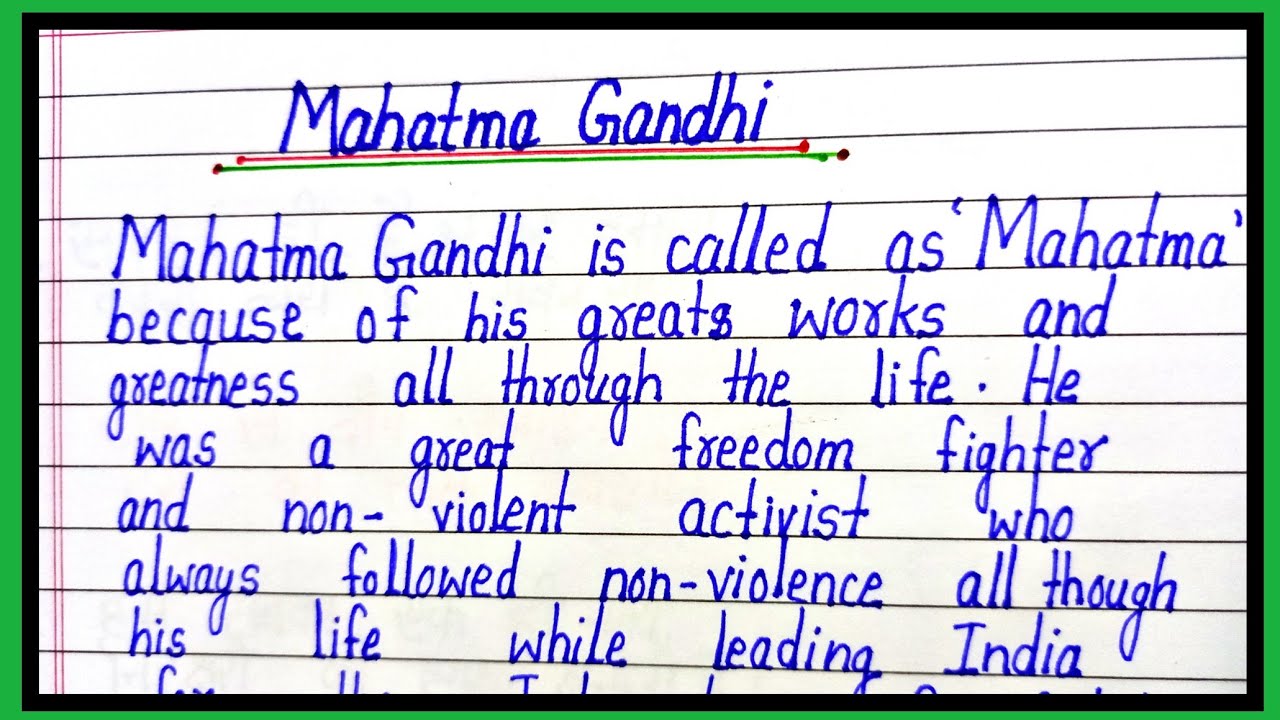 Mahatma Gandhi
Mahatma Gandhi is called as 'Mahatma'
because of his greats works and
greatness all through the life. He
was a great freedom fighter
and non-violent activist who
always followed non-violence all though
his life while leading India